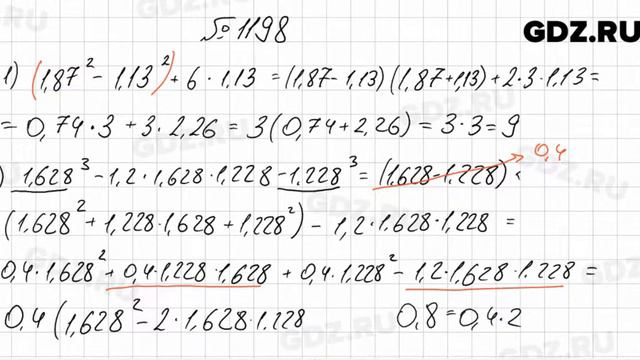 № 1198
GDZ.RU
1) (1,87² - 1,13²) + 6 · 1,13 = (1,87 - 1,13) (1,87 + 1,13) + 2 · 3 · 1,13 =
= 0,74 · 3 + 3 · 2,26 = 3 (0,74 + 2,26) = 3 · 3 = 9
0,4
) 1,628³ - 1,2 · 1,628 · 1,228 - 1,228³ = (1,628 - 1,228) ·
(1,628² + 1,228 · 1,628 + 1,228²) - 1,2 · 1,628 · 1,228 =
0,4 · 1,628² + 0,4 · 1,228 · 1,628 + 0,4 · 1,228² - 1,2 · 1,628 · 1,228 =
0,4 (1,628² - 2 · 1,628 · 1,228 0,8 = 0,4 · 2